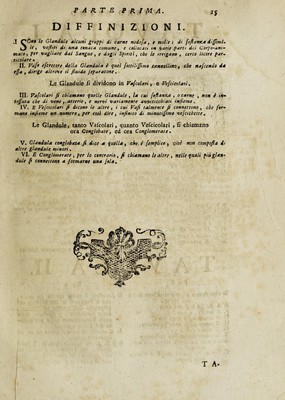 PARTE PRIMA. 25
DIFFINIZIONI.
I. SOno le Glandule alcuni gruppi di carne nodosa, e molle; di sostanza dissimi-
le, vestiti di una tonaca comune, e collocati in varie parti del Corpo uma-
no, per vagliare dal Sangue, e dagli Spiriti, che le irrigano, certo licore par-
ticolare.
II. Vaso escretore della Glandula è quel sottilissimo cannellino, che nascendo da
essa, dirige altrove il fluido separatone.
Le Glandule si dividono in Vascolari, o Vescicolari.
III. Vascolari si chiamano quelle Glandule, la cui sostanza, o carne, non è in-
tessuta che di vene, arterie, e nervi variamente annicchiati insieme.
IV. E Vescicolari si dicono le altre, i cui Vasi calmente si connettono, che for-
mano insieme un numero, per così dire, infinito di minutissime vescichette.
Le Glandule, tanto Vascolari, quanto Vescicolari, si chiamano
ora Conglobate, ed ora Conglomerate.
V. Glandula conglobata si dice a quella, che è semplice, cioè non composta di
altre glandule minori.
VI. E Conglomerate, per lo contrario, si chiamano le altre, nelle quali più glan-
dule si connettono a formarne una sola.
TA-